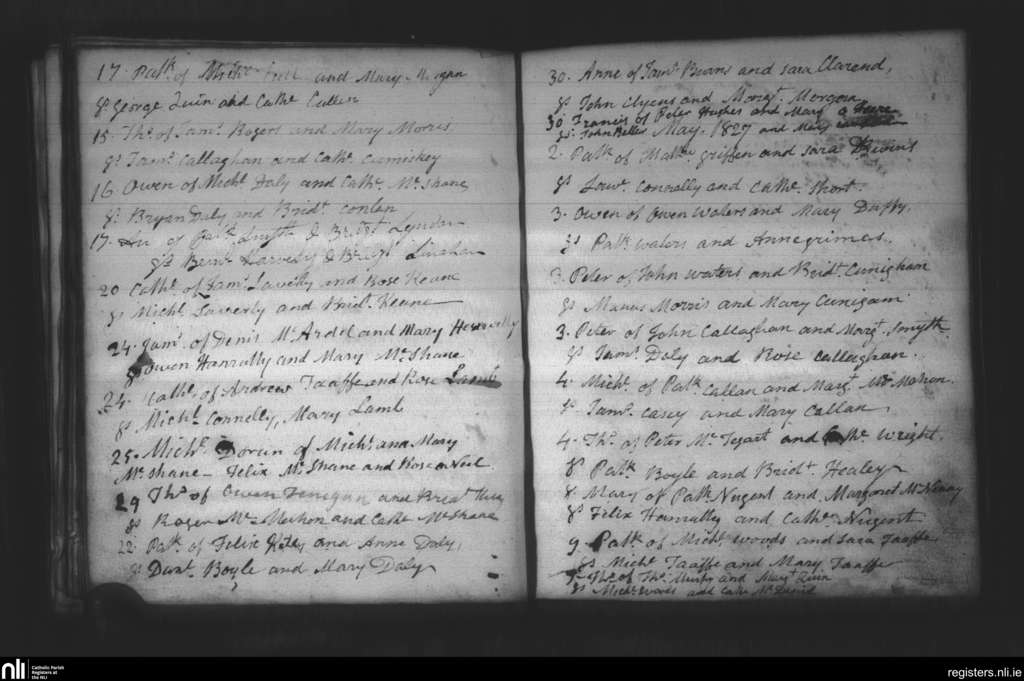 17. Patk. of Michl. and Mary
gs George Quin and Cathe. Cullen
15. Ths. of Jams. Rogers and Mary Morris
gs Jams. Callaghan and Cathe. Cumiskey
16 Owen of Michl. Daly and Cathe. McShane
gs Bryan Daly and Bridt. Conlan
17. of Patk. Smyth & Bridt. Lyndon
gs Bernd. &
20 Cathe. of Jams. Laverty and Rose Keane
gs Michl. Laverty and Keane
24. Jams. of Denis McArdel and Mary
gs Owen Hanratty and Mary McShane
24. Cathe. of Andrew Taaffe and Rose Lamb
gs Michl. Connelly, Mary Lamb
25. Michl. Doran of Michl. and Mary
McShane - Felix McShane and Rose o Neil
29 Ths. of Owen Finigan and Bridt.
gs Roger McMahon and Cathe. McShane
22. Patk. of Felix and Anne Daly,
gs Danl. Boyle and Mary Daly
30. Anne of Jams. Burns and Sara Clarend,
gs John and Margt. Morgan
30 Francis of Peter Hughes and Mary
gs. John Bellew May. 1827 and Mary
2. Patk. of Mathw. Griffen and Sara
gs Lawr. Connolly and Cathe. Short.
3. Owen of Owen Waters and Mary Duffy.
gs Patk. Waters and Anne Grimes.
3. Peter of John Waters and Bridt. Cunigham
gs Manus Morris and Mary Cunigam
3. Peter of John Callaghan and Margt. Smyth
gs Jams. Daly and Rose Callaghan.
4. Michl. of Patk. Callan and Margt. McMahon.
gs Jams. Casey and Mary Callan,
4. Ths. of Peter McTegart and Cathe. Wright.
gs Patk. Boyle and Bridt. Healey
8. Mary of Patk. Nugent and Margaret
gs Felix Hanratty and Cathe. Nugent
9. Patk. of Michl. Woods and Sara Taaffe
gs Michl. Taaffe and Mary Taaffe
Ths. of Ths. and Mary Quin
gs Michl. Woods and Cathe.
nli
Catholic Parish
Registers at
the NLI
registers.nli.ie